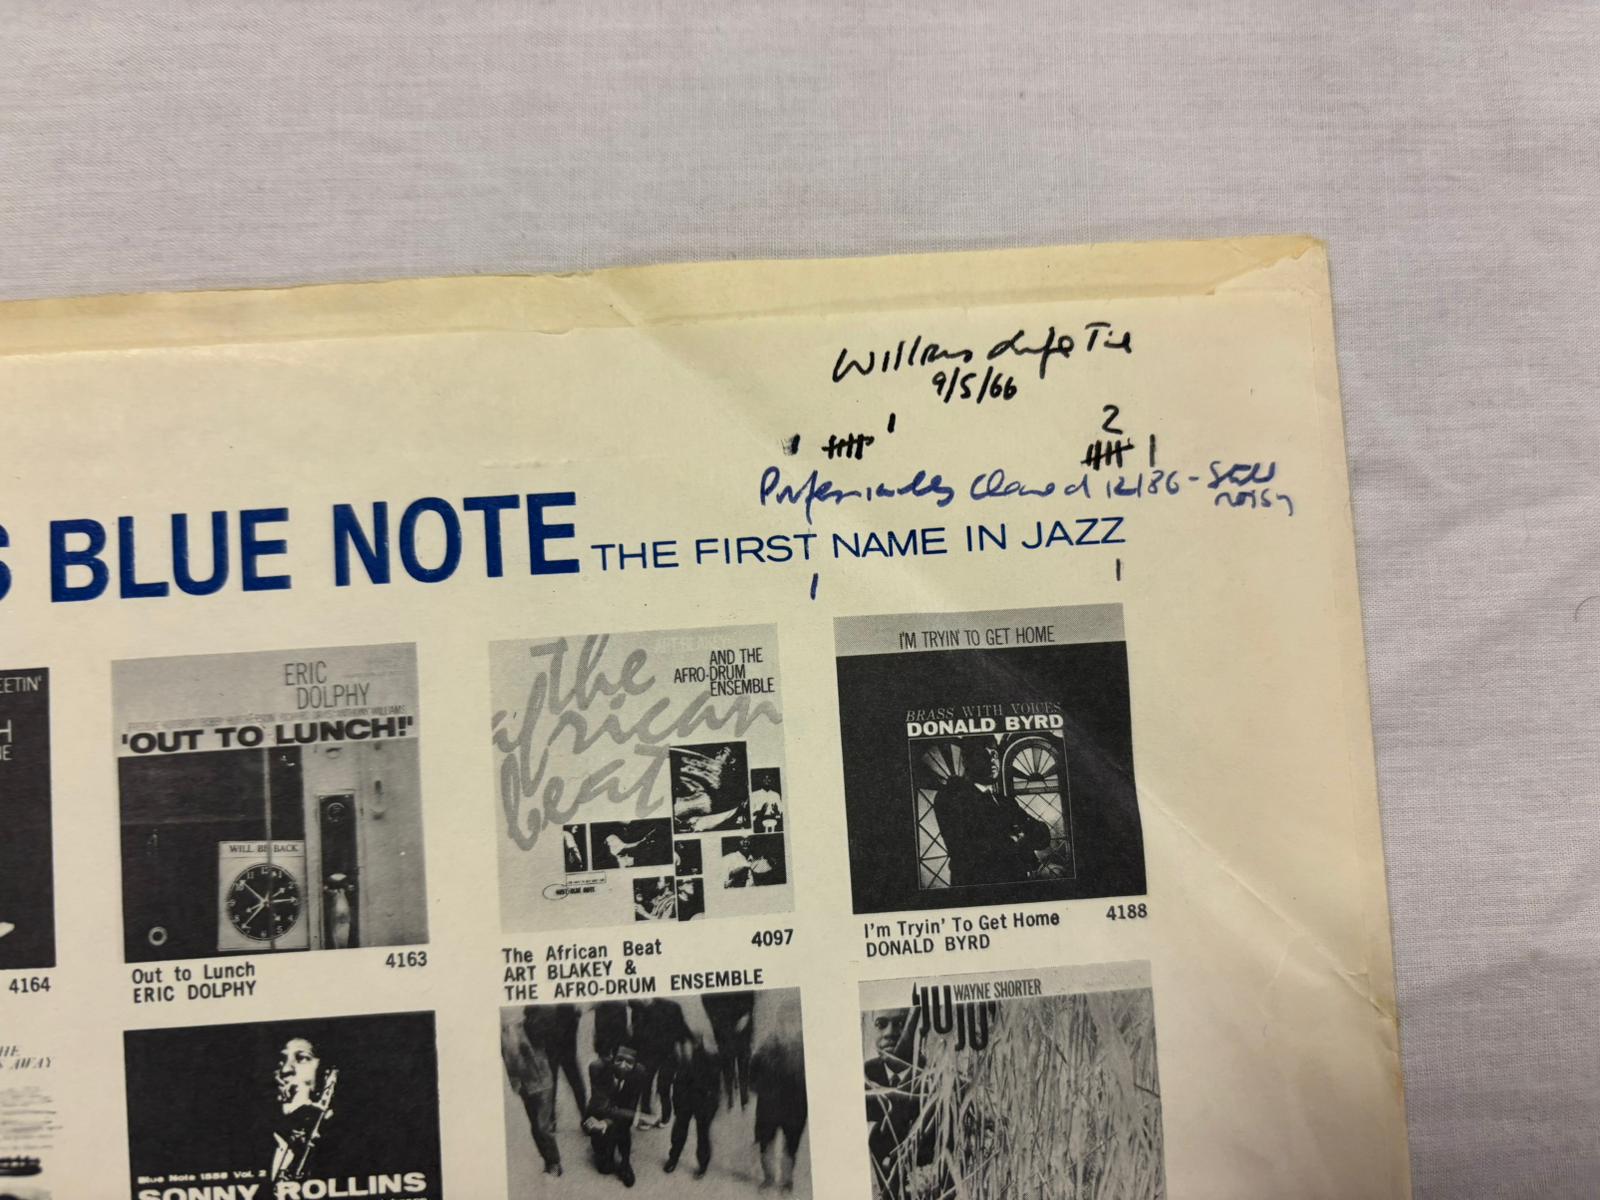 Williams Life Time
9/5/66
1
2
1
Professionally Cleaned 12/86 - Still
noisy
S BLUE NOTE THE FIRST NAME IN JAZZ
EETIN'
H
4164
ERIC
DOLPHY
'OUT TO LUNCH!'
WILL BE BACK
Out to Lunch 4163
ERIC DOLPHY
AND THE
AFRO-DRUM
ENSEMBLE
the
african
beat
The African Beat 4097
ART BLAKEY &
THE AFRO-DRUM ENSEMBLE
I'M TRYIN' TO GET HOME
BRASS WITH VOICES
DONALD BYRD
I'm Tryin' To Get Home 4188
DONALD BYRD
HE
AWAY
Blue Note 1558 Vol. 2
SONNY ROLLINS
'JU JU'
WAYNE SHORTER